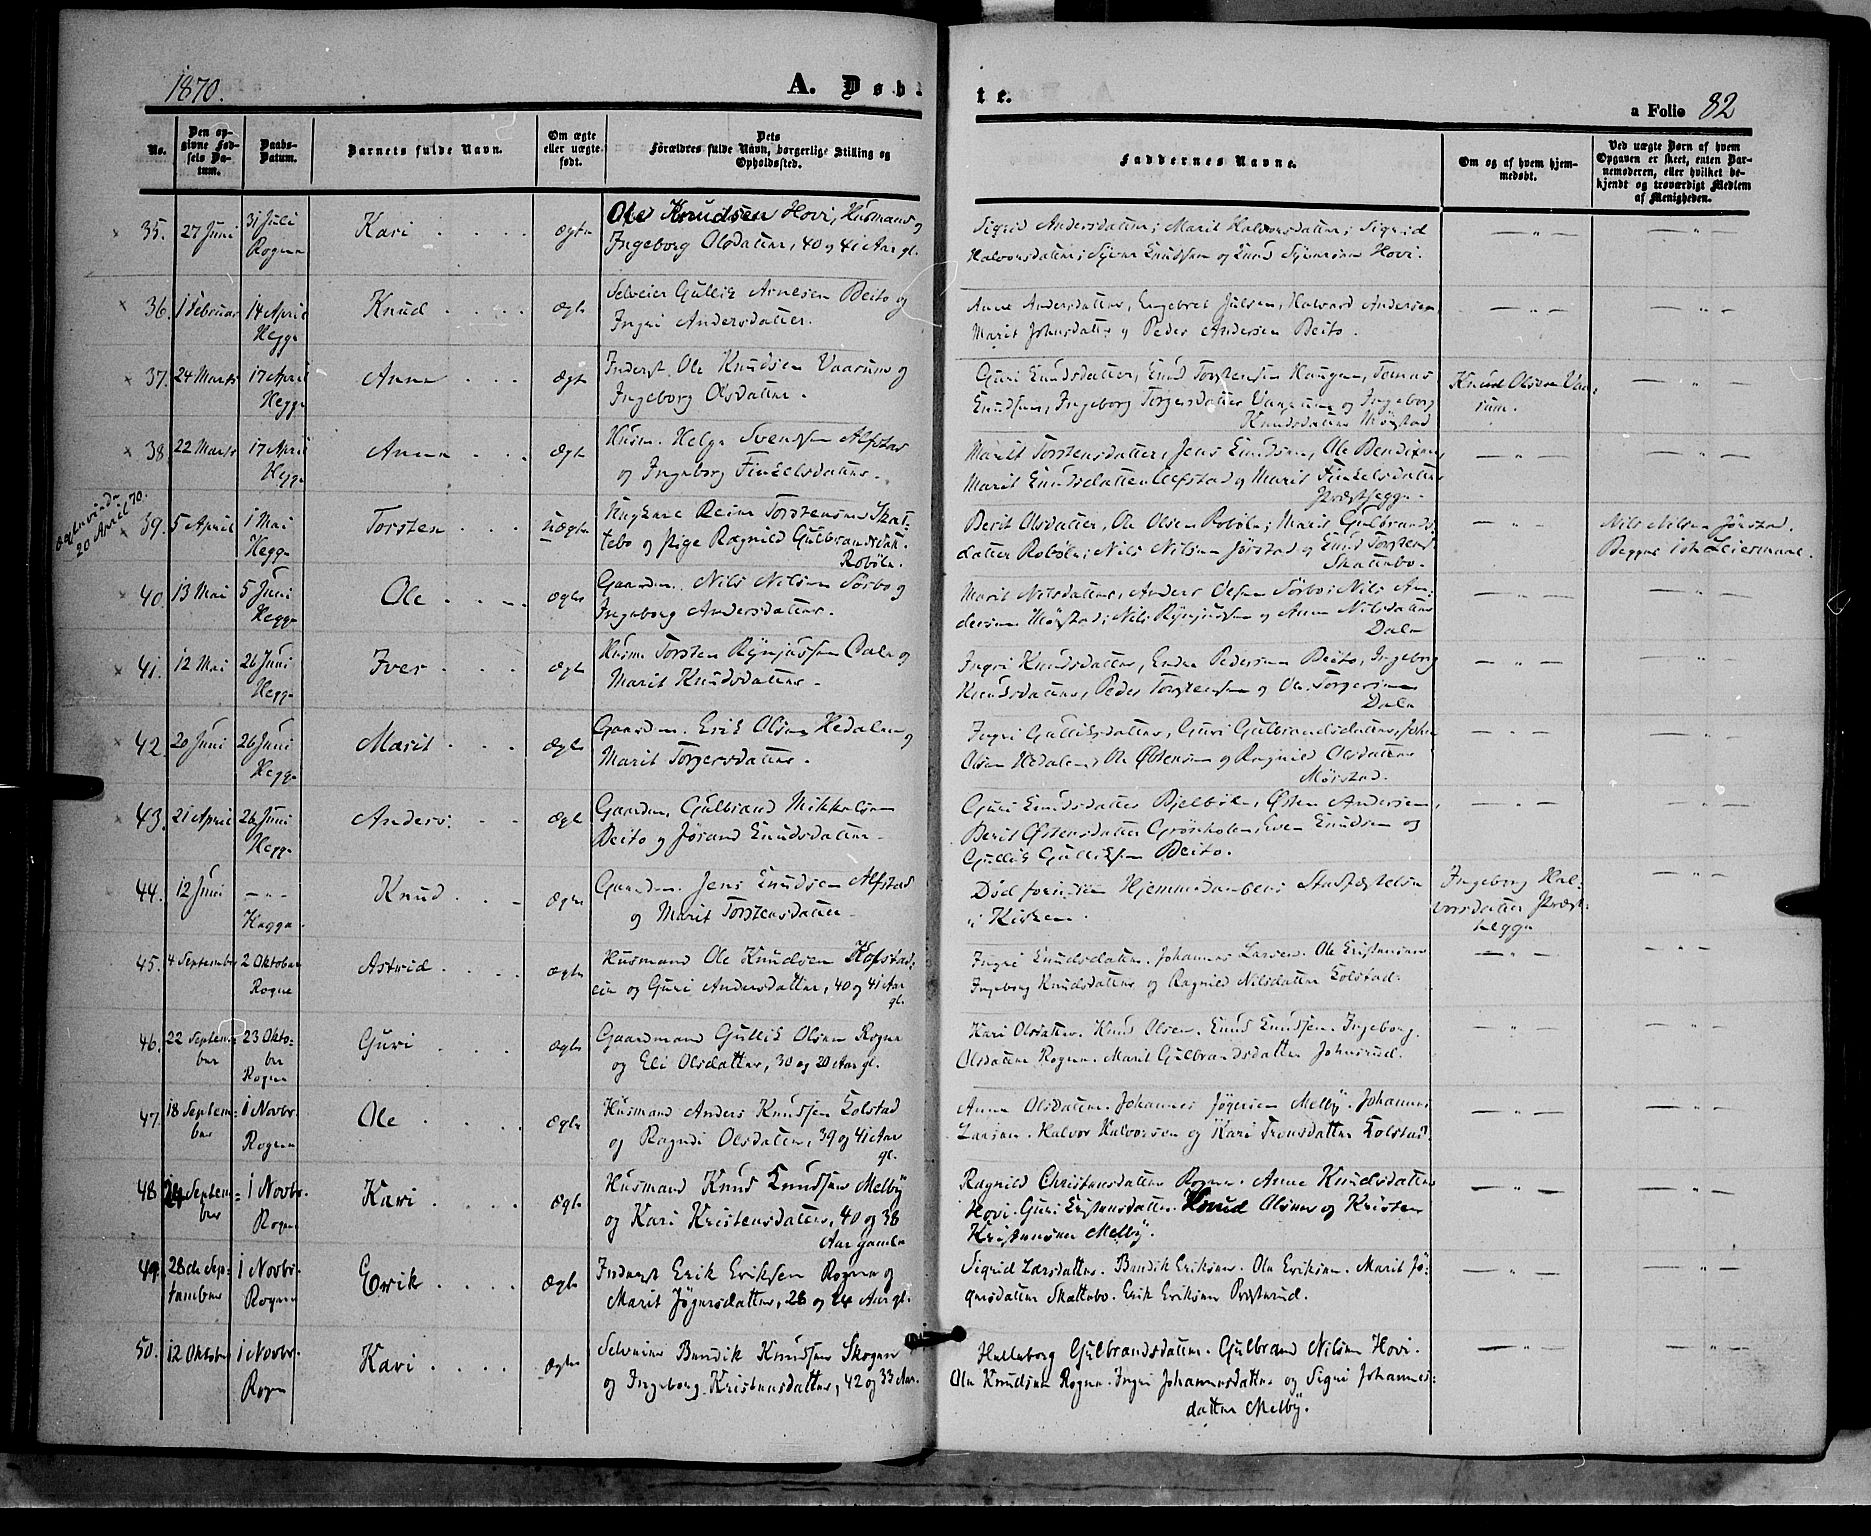 1870.
A. Døbte.
a Folio 82
No.
Den op-
givne Fød-
sels Da-
tum.
Daabs-
Datum.
Barnets fulde Navn.
Om ægte
eller uægte
født.
Dets
Forældres fulde Navn, borgerlige Stilling og
Opholdssted.
Faddernes Navne.
Om og af hvem hjem-
medøbt.
Ved uægte Børn af hvem
Opgaven er skeet, enten Bar-
nemoderen, eller hvilket be-
kjendt og troværdigt Medlem
af Menigheden.
35. 27 Juni 31 Juli Rogne Kari ægte
Ole Knudsen Hovi, Husmand og
Ingeborg Olsdatter, 40 og 41 Aar gl.
Sigrid Andersdatter; Marit Halvorsdatter; Sigrid
Halvorsdatter; Syver Knudsen og Knud Syversen Hovi.
36. 1 Februar 14 April Hegge Knud ægte
Selveier Gullik Arnesen Beito og
Ingri Andersdatter.
Anne Andersdatter, Engebret Julsen, Halvard Andersen
Marit Johnsdatter og Peder Andersen Beito.
37. 24 Marts 17 April Hegge Anne ægte
Inderst. Ole Knudsen Vaarum og
Ingeborg Olsdatter.
Guri Knudsdatter, Knud Torstensen Haugen, Tomas
Knudsen, Ingeborg Torgersdatter og Ingeborg
Knudsdatter Mørstad
Knud Olsen Vaa-
rum.
38. 22 Marts 17 April Hegge Anne ægte
Husm. Helge Svendsen Alfstad
og Ingeborg Finkelsdatter.
Marit Torstensdatter, Jens Knudsen, Ole Bendixen,
Marit Knudsdatter Alfstad og Marit Finkelsdatter
Præsthegge.
20 April 70.
39. 5 April 1 Mai Hegge Torsten uægte
Ungkarl Reier Torstensen Skat-
tebo og Pige Ragnild Gulbrandsdatt.
Robøle.
Berit Olsdatter, Ole Olsen Robøle; Marit Gulbrands
datter Robøle; Nils Nilsen Jørstad og Knud Torstens
Skattebo.
Nils Nilsen Jørstad.
Begges 1ste Leiermaal.
40. 13 Mai 5 Juni Hegge Ole ægte
Gaardm. Nils Nilsen Sørbo og
Ingeborg Andersdatter.
Marit Nilsdatter, Anders Olsen Sørbo; Nils An-
dersen Mørstad; Nils Rynjussen og Anne Nilsdatter
Dale
41. 12 Mai 26 Juni Hegge Iver ægte
Husm. Torsten Rynjussen Dale og
Marit Knudsdatter.
Ingri Knudsdatter, Endre Pedersen Beito, Ingeborg
Knudsdatter, Peder Torstensen og Ole Torgersen
Dale
42. 20 Juni 26 Juni Hegge Marit ægte
Gaardm. Erik Olsen Hedalen og
Marit Torgersdatter.
Ingri Gulliksdatter, Guri Gulbrandsdatter, John
Olsen Hedalen, Ole Østensen og Ragnild Olsdatter
Mørstad.
43. 21 April 26 Juni Hegge Anders. ægte
Gaardm. Gulbrand Mikkelsen
Beito og Jørand Knudsdatter
Guri Knudsdatter Bjelbøle, Østen Andersen,
Berit Østensdatter Grønholen, Sven Knudsen og
Gullik Gulliksen Beito.
44. 12 Juni — " — Hegge Knud ægte
Gaardm. Jens Knudsen Alfstad
og Marit Torstensdatter
Død forinden Hjemmedaabens Stadfæstelse
i Kirken.
Ingeborg Hal-
vorsdatter Præst-
hegge
45. 4 September 2 Oktober Rogne Astrid ægte
Husmand Ole Knudsen Kolstad-
eie og Guri Andersdatter, 40 og 41 Aar
gl.
Ingri Knudsdatter. Johannes Larsen. Ole Kristensen
Ingeborg Knudsdatter og Ragnild Nilsdatter Kolstad.
46. 22 Septem-
ber 23 Okto-
ber Rogne Guri ægte
Gaardmand Gullik Olsen Rogne
og Eli Olsdatter, 30 og 20 Aar gl.
Kari Olsdatter. Knud Olsen. Knud Knudsen. Ingeborg
Olsdatter Rogne. Marit Gulbrandsdatter Johnsrud.
47. 18 Septem-
ber 1 Novbr. Rogne Ole ægte
Husmand Anders Knudsen Kolstad
og Ragndi Olsdatter, 39 og 41 Aar
gl.
Anne Olsdatter. Johannes Jøgersen Melby. Johannes
Larsen. Halvor Halvorsen og Kari Tronsdatter Kolstad.
48. 24 Septem-
ber 1 Novbr. Rogne Kari ægte
Husmand Knud Knudsen Melby
og Kari Kristensdatter, 40 og 38
Aar gamle
Ragnild Christensdatter Rogne. Anne Knudsdatter
Hovi. Guri Kristensdatter. Knud Olsen og Kristen
Kristensen Melby.
49. 28de Sep-
tember 1 Novbr. Rogne Erik ægte
Inderst Erik Eriksen Rogne og
Marit Jøgersdatter, 28 og 24 Aar gl.
Sigrid Larsdatter. Bendik Eriksen. Ole Eriksen. Marit Jø-
gersdatter Skattebo. Erik Eriksen Præsterud.
50. 12 Oktober 1 Novbr. Rogne Kari ægte
Selveier Bendik Knudsen Skogen
og Ingeborg Kristensdatter, 42 og 33 Aar.
Helleborg Gulbrandsdatter. Gulbrand Nilsen Hovi.
Ole Knudsen Rogne. Ingri Johannesdatter og Sigri Johannes-
datter Melby.